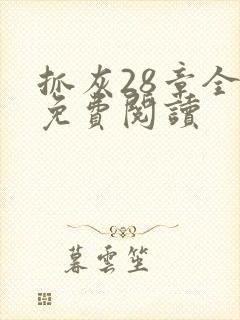 抓灰28章全
免費閱讀
暮雲笙